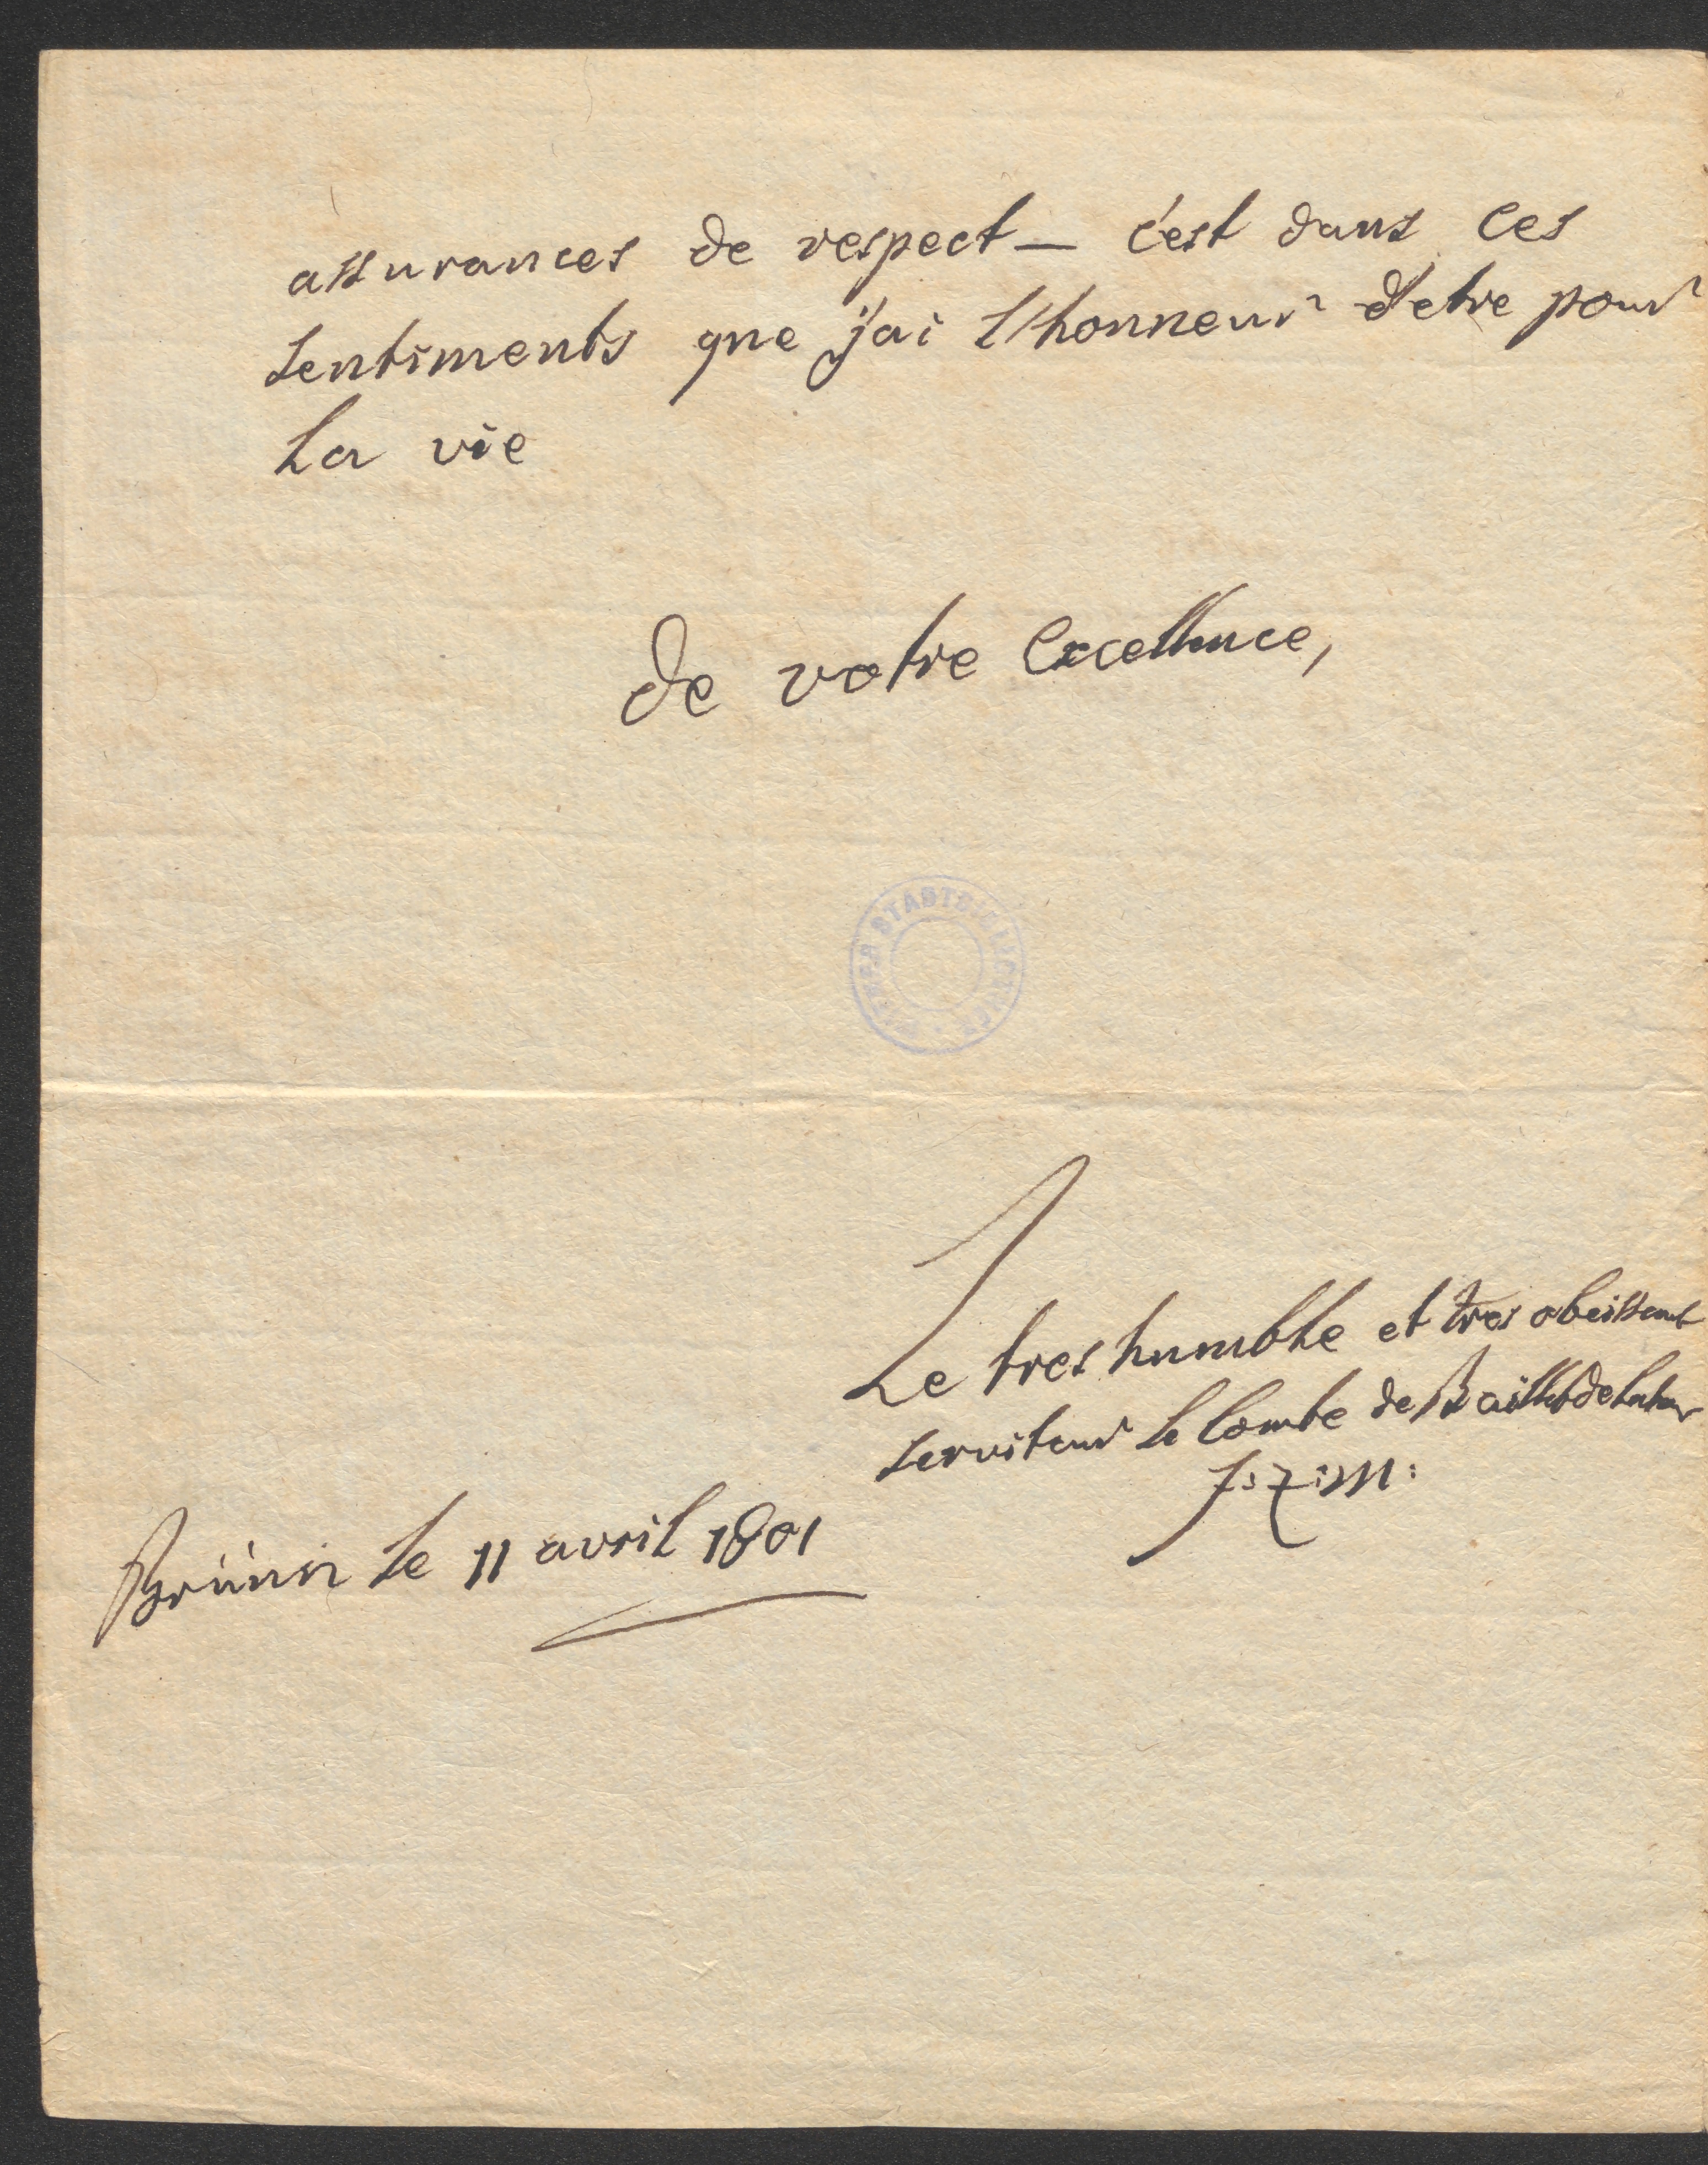 assurances de respect — c'est dans ces
sentiments que j'ai l'honneur d'etre pour
La vie
de votre Excellence,
Le tres humble et tres obeissant
serviteur le Comte de Baillet de Latour
f: z: m:
Brünn le 11 avril 1801